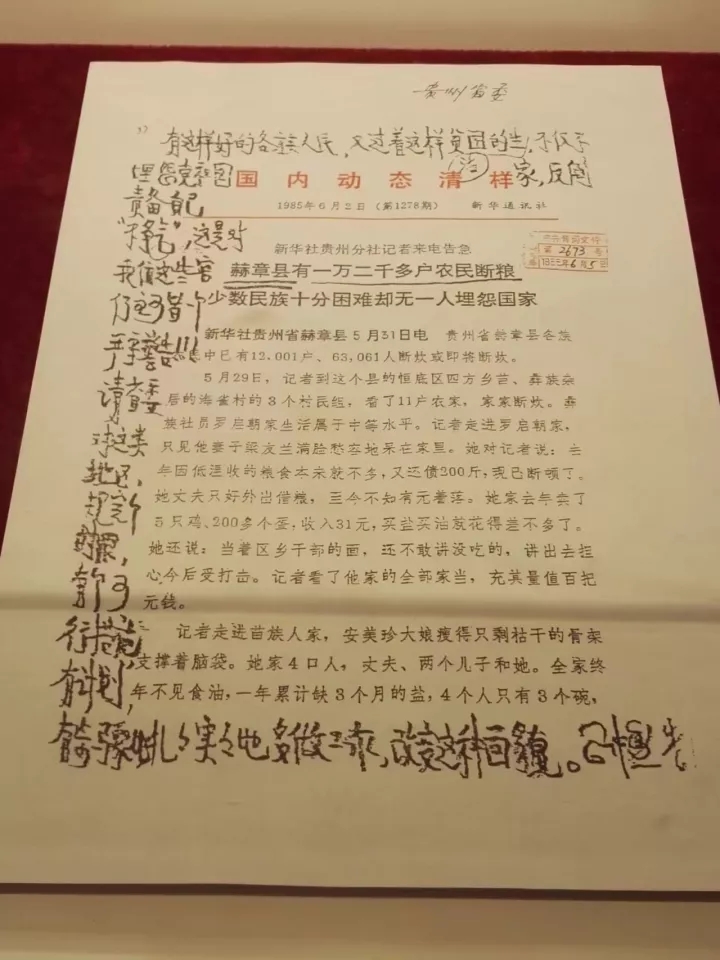 贵州省委
有这样好的各族人民，又过着这样贫困的生活，不仅不
埋怨党和国家，反倒
责备自己
“不争气”，这是对
我们这些官
严重警告!!!
请省委
对这类
地区，
规定个
时限，
有个可
行措施，
有计划，
有步骤扎扎实实地多做工作，改变这种面貌。
国内动态清样
1985年6月2日（第1278期）　新华通讯社
第 2673 号
1985年6月5日
新华社贵州分社记者来电告急
赫章县有一万二千多户农民断粮
少数民族十分困难却无一人埋怨国家
新华社贵州省赫章县5月31日电　贵州省赫章县各族
中已有12,001户、63,061人断炊或即将断炊。
5月29日，记者到这个县的恒底区四方乡苗、彝族杂
居的海雀村的3个村民组，看了11户农家，家家断炊。彝
族社员罗启朝家生活属于中等水平。记者走进罗启朝家，
只见他妻子梁友兰满脸愁容地呆在家里。她对记者说：去
年因低温收的粮食本来就不多，又还债200斤，现已断顿了。
她丈夫只好外出借粮，至今不知有无着落。她家去年卖了
5只鸡、200多个蛋，收入31元，买盐买油就花得差不多了。
她还说：当着区乡干部的面，还不敢讲没吃的，讲出去担
心今后受打击。记者看了他家的全部家当，充其量值百把
元钱。
记者走进苗族人家，安美珍大娘瘦得只剩枯干的骨架
支撑着脑袋。她家4口人，丈夫、两个儿子和她。全家终
年不见食油，一年累计缺3个月的盐，4个人只有3个碗，